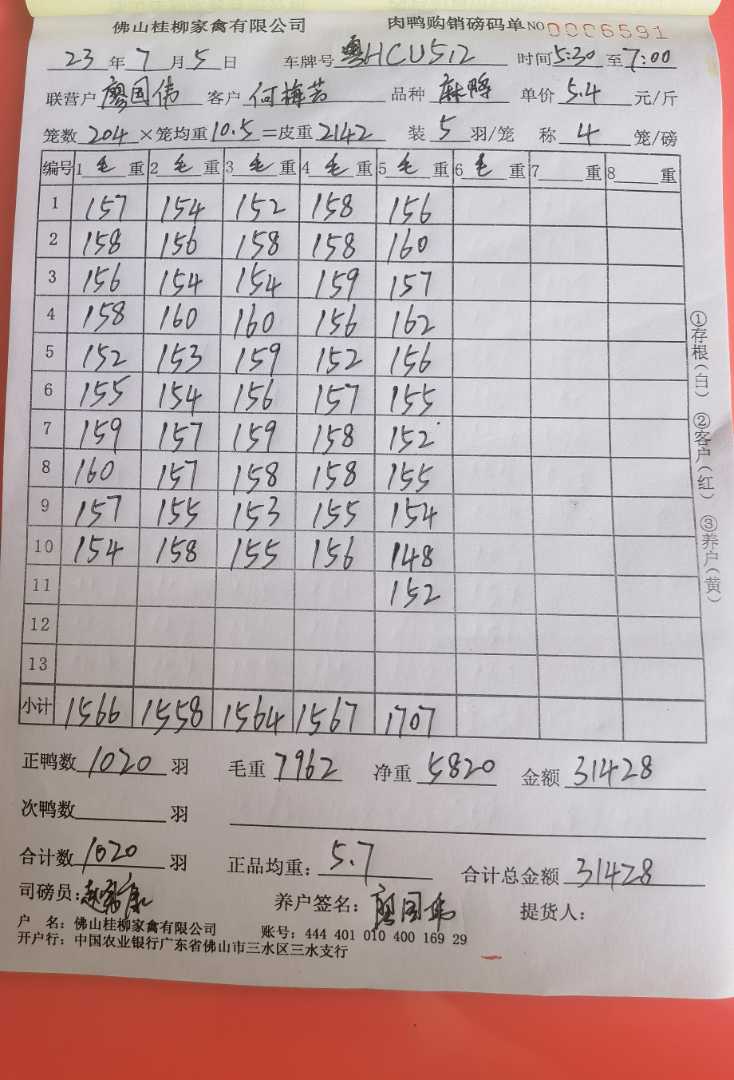 佛山桂柳家禽有限公司 肉鸭购销磅码单 NO 0006591
23 年 7 月 5 日 车牌号 粤HCU512 时间 5:30 至 7:00
联营户 廖国伟 客户 何梅芳 品种 麻鸭 单价 5.4 元/斤
笼数 204 ×笼均重 10.5 =皮重 2142 装 5 羽/笼 称 4 笼/磅
编号 1 毛 重 2 毛 重 3 毛 重 4 毛 重 5 毛 重 6 毛 重 7 重 8 重
1 157 154 152 158 156
2 158 156 158 158 160
3 156 154 154 159 157
4 158 160 160 156 162
5 152 153 159 152 156
6 155 154 156 157 155
7 159 157 159 158 152
8 160 157 158 158 155
9 157 155 153 155 154
10 154 158 155 156 148
11 152
12
13
小计 1566 1558 1564 1567 1707
正鸭数 1020 羽 毛重 7962 净重 5820 金额 31428
次鸭数 羽
合计数 1020 羽 正品均重: 5.7 合计总金额 31428
司磅员: 养户签名: 廖国伟 提货人:
户 名: 佛山桂柳家禽有限公司 账号: 444 401 010 400 169 29
开户行: 中国农业银行广东省佛山市三水区三水支行
①存根(白) ②客户(红) ③养户(黄)